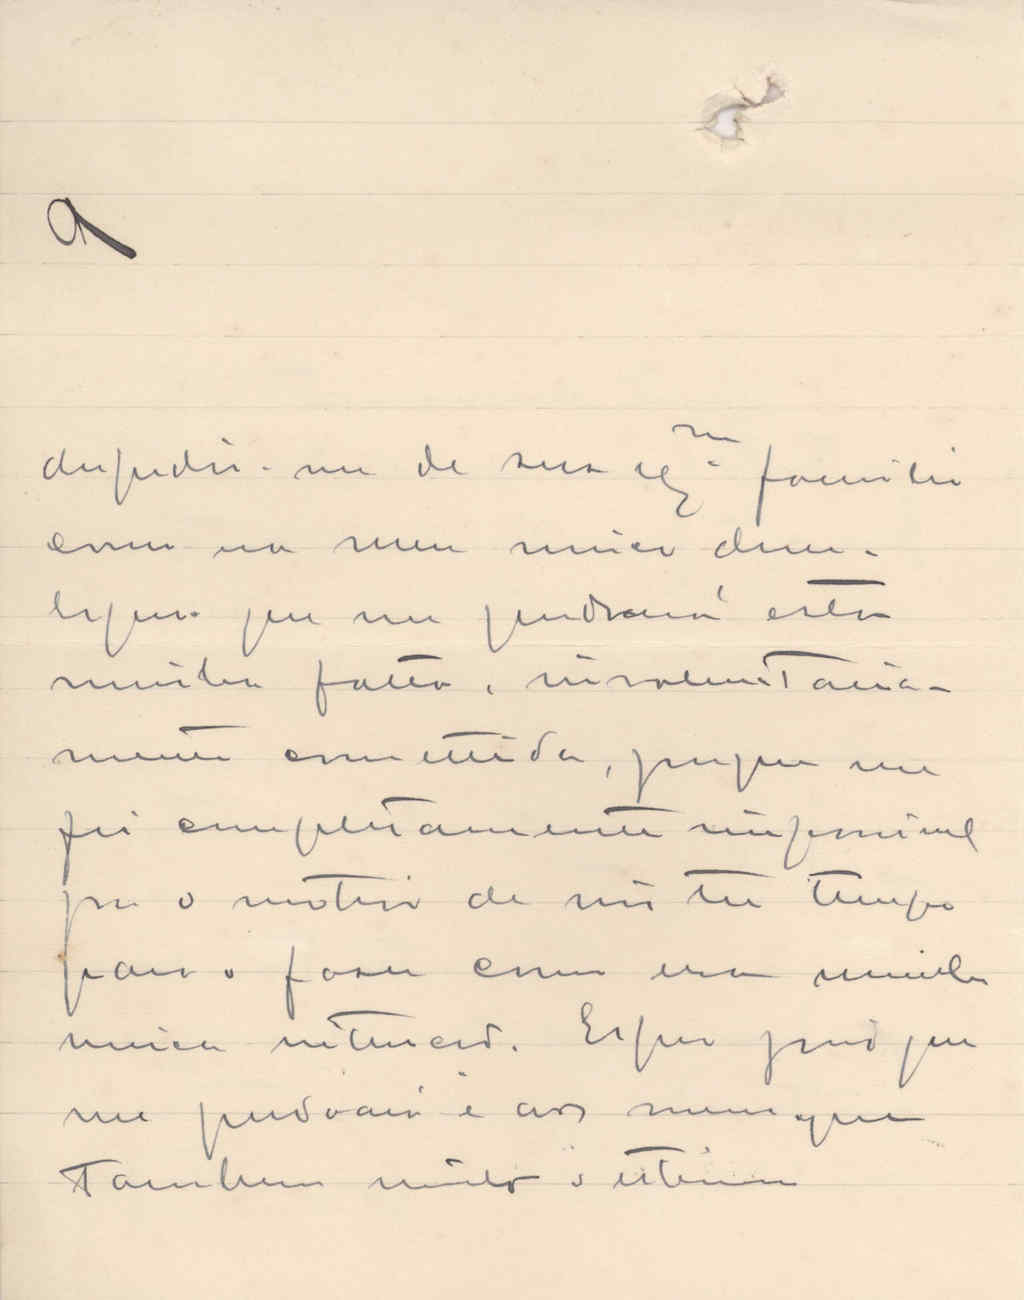 9
despedir-me de sua Exma familia
como era meu unico dese-
espero que me perdoará esta
minha falta, involuntaria-
mente comettida, porque me
foi completamente impossivel
por o motivo de não ter tempo
para o fazer como era minha
unica intenção. Espero pois que
me perdoará e aos meus que
tambem muito o estimam